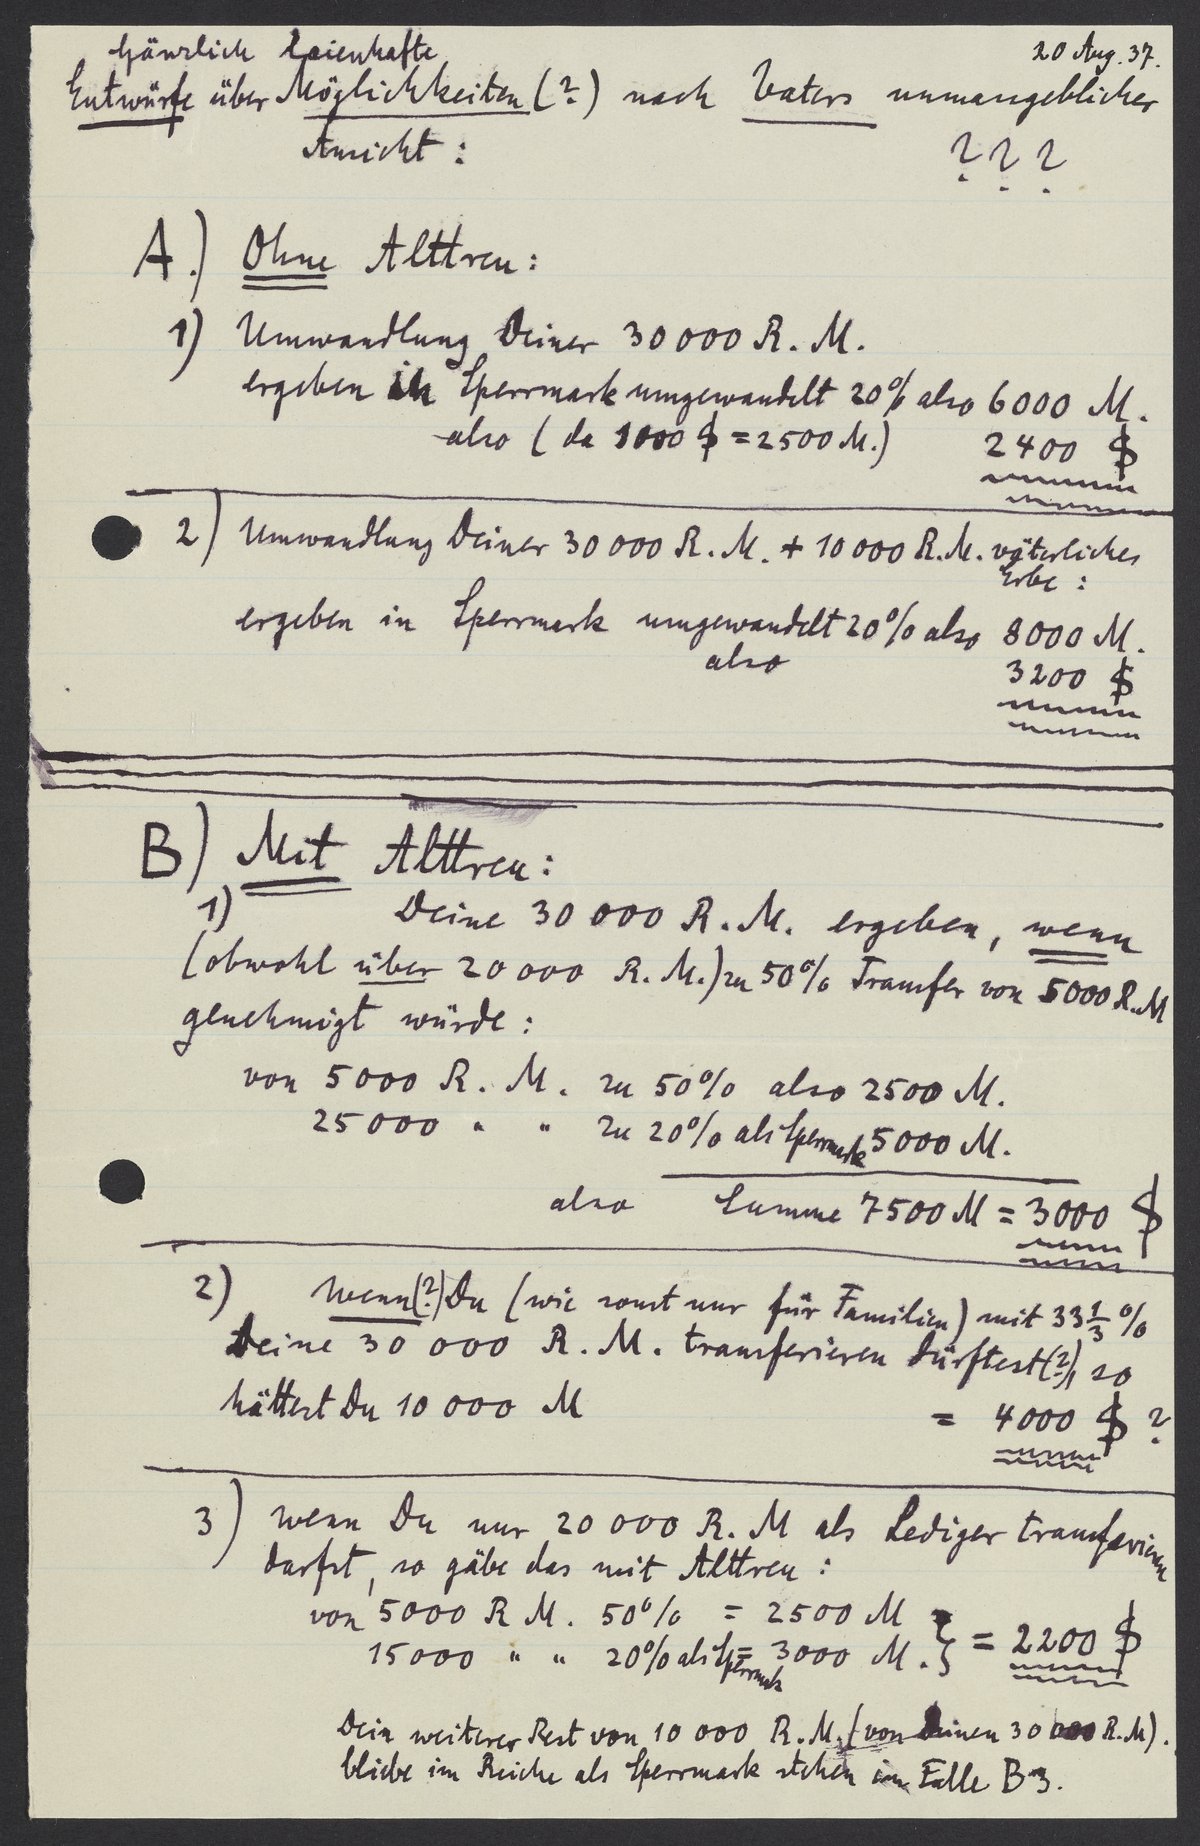 Gänzlich laienhafte
20 Aug. 37.
Entwürfe über Möglichkeiten (?) nach Vaters unmassgeblicher
Ansicht :
? ? ?
A.) Ohne Alttreu :
1) Umwandlung Deiner 30 000 R. M.
ergeben in Sperrmark umgewandelt 20% also 6000 M.
also ( da 1000 $ = 2500 M.) 2400 $
2) Umwandlung Deiner 30 000 R. M. + 10 000 R. M. väterliches
Erbe :
ergeben in Sperrmark umgewandelt 20% also 8000 M.
also 3200 $
B) Mit Alttreu :
1) Deine 30 000 R. M. ergeben, wenn
(obwohl über 20 000 R. M.) zu 50% Transfer von 5000 R. M
genehmigt würde :
von 5000 R. M. zu 50% also 2500 M.
25 000 " " zu 20% als Sperrmark 5000 M.
also Summe 7500 M = 3000 $
2) Wenn (?) Du (wie sonst nur für Familien) mit 33 1/3 %
Deine 30 000 R. M. transferieren dürftest (?), so
hättest Du 10 000 M = 4000 $ ?
3) wenn Du nur 20 000 R. M als Lediger transferieren
darfst, so gäbe das mit Alttreu :
von 5000 R M. 50% = 2500 M
15 000 " " 20% als Sperrmark = 3000 M. } = 2200 $
Dein weiterer Rest von 10 000 R. M. (von Deinen 30 000 R. M).
bliebe im Reiche als Sperrmark stehen im Falle B 3.